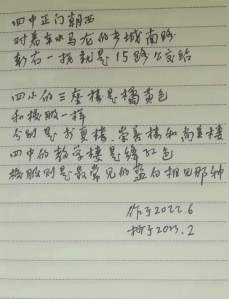 四中正门朝西
对着车水马龙的秀城南路
靠右一拐就是15路公交站
四小的三座楼是橘黄色
和校服一样
分别是书真楼、荣美楼和尚真楼
四中的教学楼是绛红色
校服则是最常见的蓝白相间那种
作于2022.6
抄于2023.2